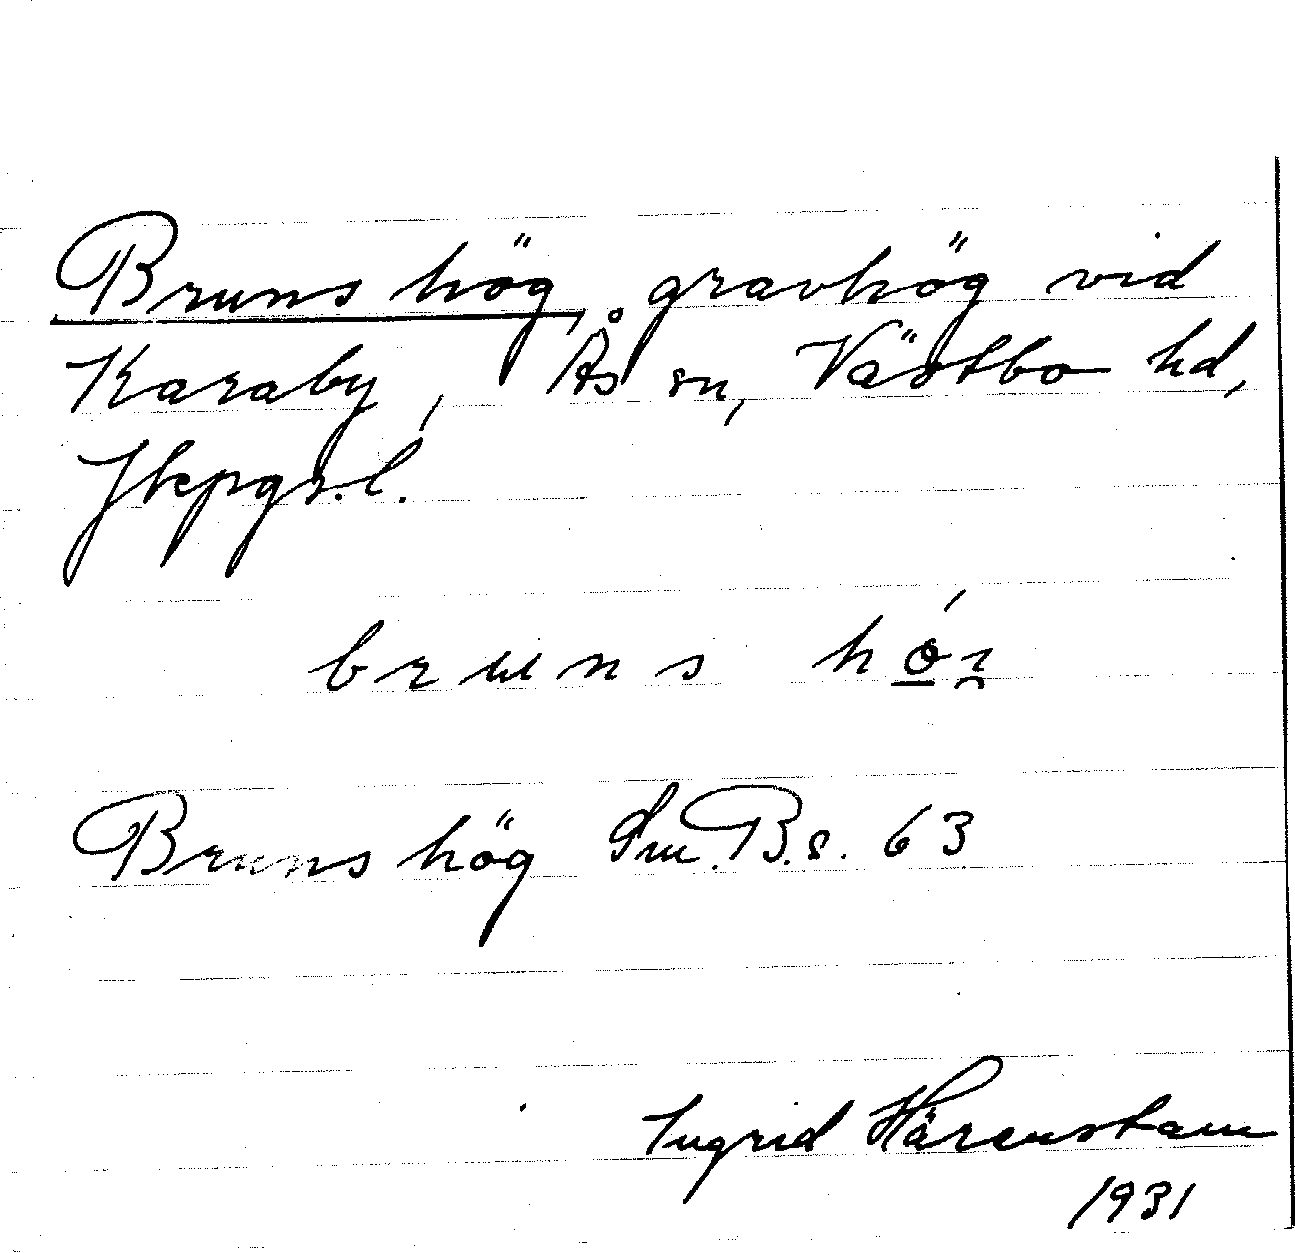 Bruns hög, gravhög vid
Karaby, Ås sn, Västbo hd,
Jkpgs. l.
bruns
Bruns hög Sm. B. s. 63
Ingrid Härenstam
1931